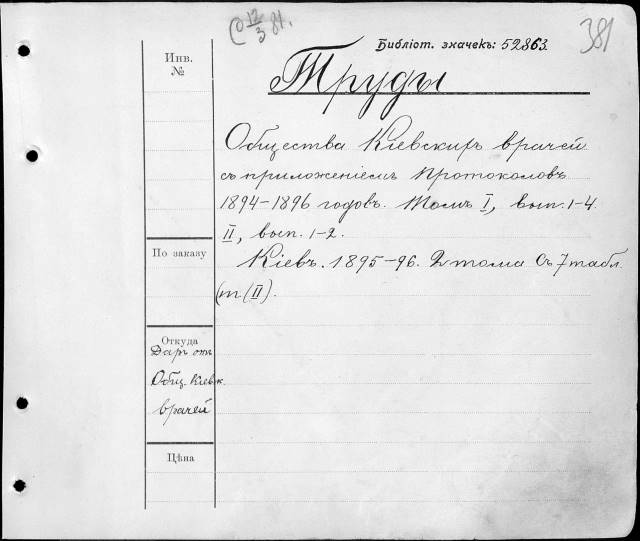 12/3 81.
381
Библіот. значекъ: 52863.
Инв.
№
Труды
Общества Кіевскихъ врачей
съ приложеніемъ Протоколовъ
1894-1896 годовъ. Томъ I, вып. 1-4.
II, вып. 1-2.
По заказу
Кіевъ. 1895-96. 2 тома съ 7 табл.
(т (II).
Откуда
Даръ отъ
Общ. Кіевск.
врачей
Цѣна